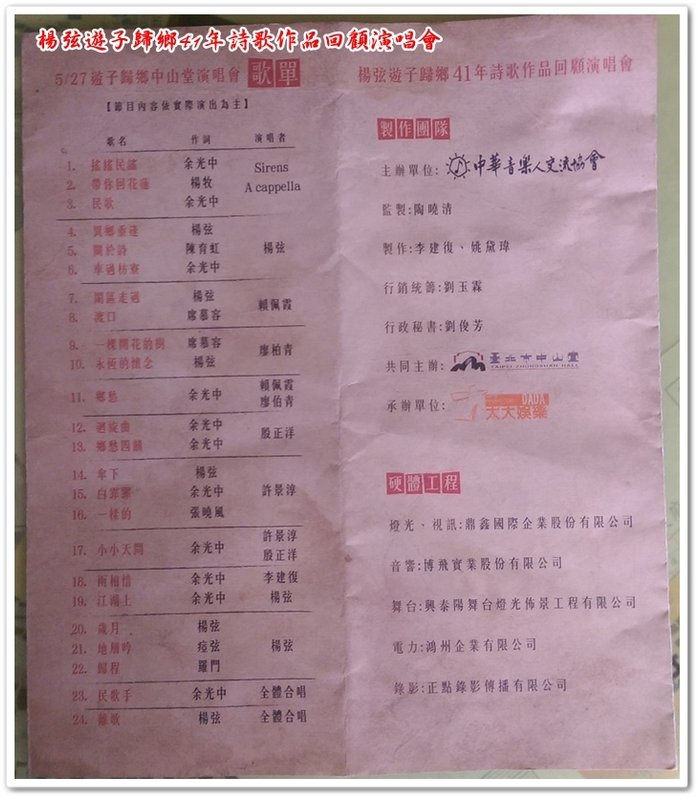 楊弦遊子歸鄉41年詩歌作品回顧演唱會
5/27遊子歸鄉中山堂演唱會 歌單
【節目內容依實際演出為主】
歌名 作詞 演唱者
1. 搖搖民謠 余光中
Sirens
2. 帶你回花蓮 楊牧
A cappella
3. 民歌 余光中
4. 異鄉重逢 楊弦
5. 關於詩 陳育虹 楊弦
6. 車過枋寮 余光中
7. 鬧區走過 楊弦
賴佩霞
8. 渡口 席慕容
9. 一棵開花的樹 席慕容
廖柏青
10. 永恆的懷念 楊弦
11. 鄉愁 余光中 賴佩霞
廖伯青
12. 迴旋曲 余光中
殷正洋
13. 鄉愁四韻 余光中
14. 傘下 楊弦
15. 白霏霏 余光中 許景淳
16. 一樣的 張曉風
17. 小小天問 余光中 許景淳
殷正洋
18. 兩相惜 余光中 李建復
19. 江湖上 余光中 楊弦
20. 歲月 楊弦
21. 地層吟 瘂弦 楊弦
22. 歸程 羅門
23. 民歌手 余光中 全體合唱
24. 離歌 楊弦 全體合唱
楊弦遊子歸鄉41年詩歌作品回顧演唱會
製作團隊
主辦單位:中華音樂人交流協會
監製:陶曉清
製作:李建復、姚黛瑋
行銷統籌:劉玉霖
行政秘書:劉俊芳
共同主辦:臺北市中山堂
TAIPEI ZHONGSHAN HALL
承辦單位: DADA
大大娛樂
硬體工程
燈光、視訊:鼎鑫國際企業股份有限公司
音響:博飛實業股份有限公司
舞台:興泰陽舞台燈光佈景工程有限公司
電力:鴻州企業有限公司
錄影:正點錄影傳播有限公司